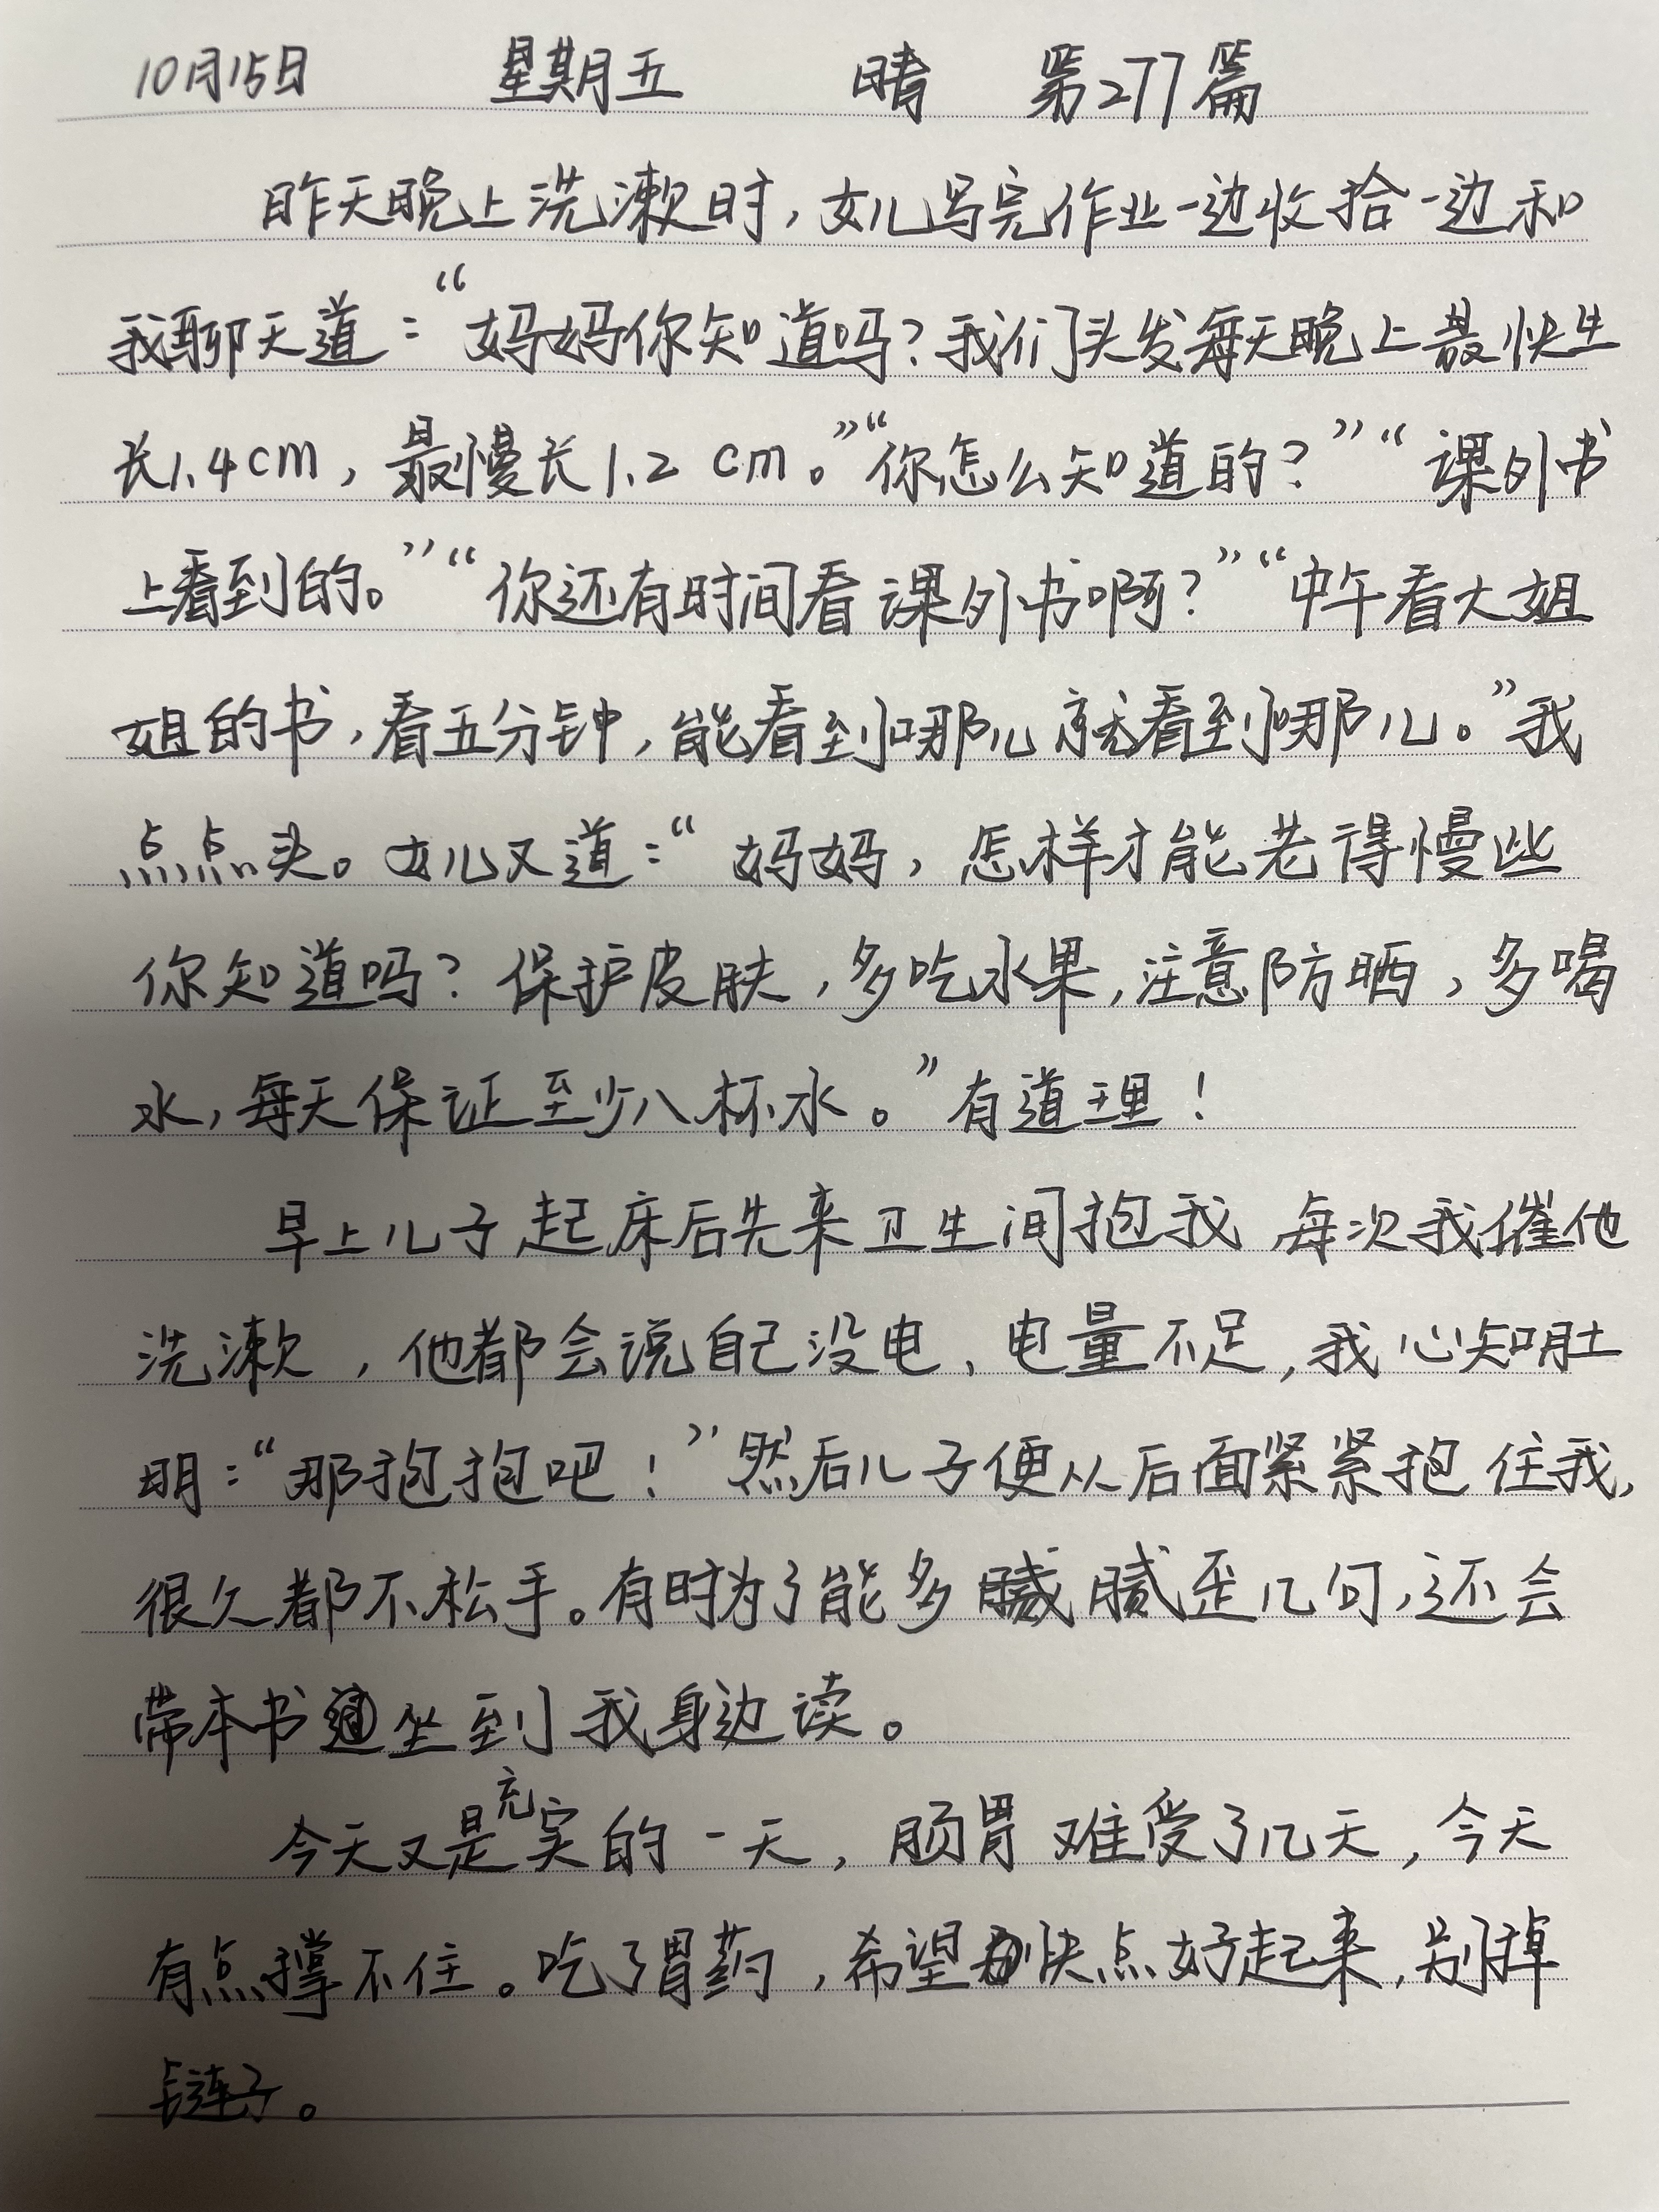 10月15日 星期五 晴 第277篇
昨天晚上洗漱时,女儿写完作业一边收拾一边和
我聊天道:“妈妈你知道吗?我们头发每天晚上最快生
长1.4cm,最慢长1.2 cm。”“你怎么知道的?”“课外书
上看到的。”“你还有时间看课外书啊?”“中午看大姐
姐的书,看五分钟,能看到哪儿就看到哪儿。”我
点点头。女儿又道:“妈妈,怎样才能老得慢些
你知道吗?保护皮肤,多吃水果,注意防晒,多喝
水,每天保证至少八杯水。”有道理!
早上儿子起床后先来卫生间抱我 每次我催他
洗漱,他都会说自己没电、电量不足,我心知肚
明:“那抱抱吧!”然后儿子便从后面紧紧抱住我,
很久都不松手。有时为了能多腻腻歪几句,还会
带本书坐到我身边读。
今天又是充实的一天,肠胃难受了几天,今天
有点撑不住。吃了胃药,希望快点好起来,别掉
链子。